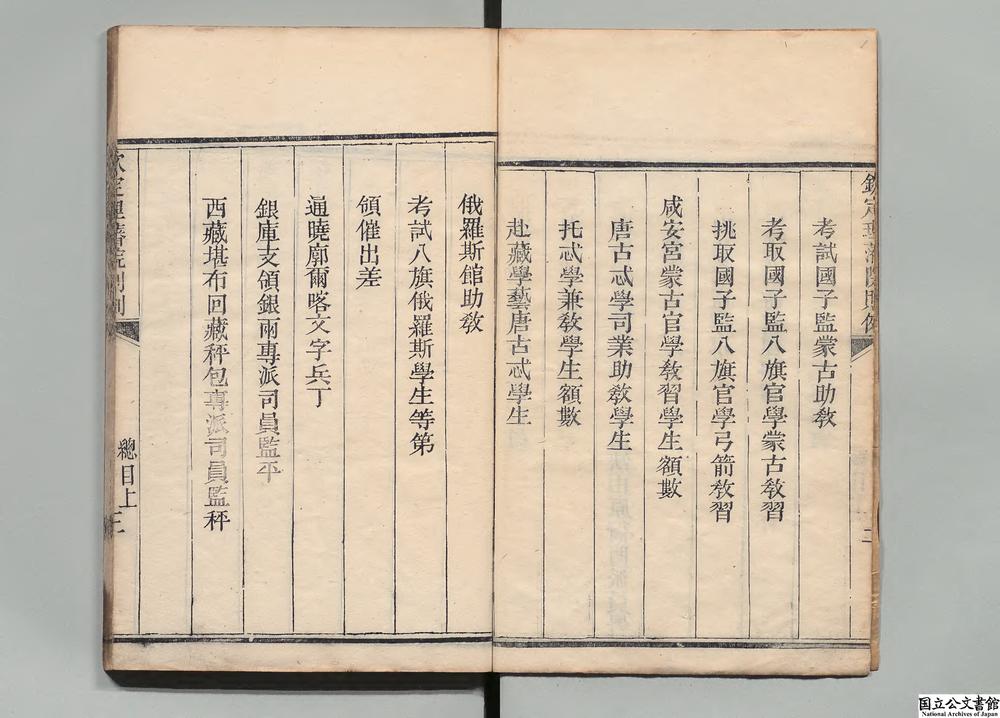 欽定理藩院則例
二
考試國子監蒙古助敎
考取國子監八旗官學蒙古敎習
挑取國子監八旗官學弓箭敎習
咸安宮蒙古官學敎習學生額數
唐古忒學司業助敎學生
托忒學兼敎學生額數
赴藏學藝唐古忒學生
俄羅斯館助敎
考試八旗俄羅斯學生等第
領催出差
通曉廓爾喀文字兵丁
銀庫支領銀兩專派司員監平
西藏堪布回藏秤包專派司員監秤
欽定理藩院則例
總目上
三
国立公文書館
National Archives of Japan